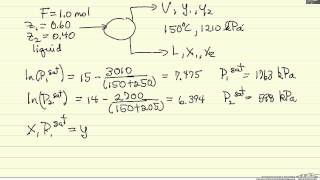 F = 1.0 mol
z₁ = 0.60
z₂ = 0.40
liquid
V, y₁, y₂
150°C, 1210 kPa
L, x₁, x₂
ln(P₁^sat) = 15 - 3010/(150+250) = 7.475 P₁^sat = 1763 kPa
ln(P₂^sat) = 14 - 2700/(150+205) = 6.394 P₂^sat = 598 kPa
x₁P₁^sat = y